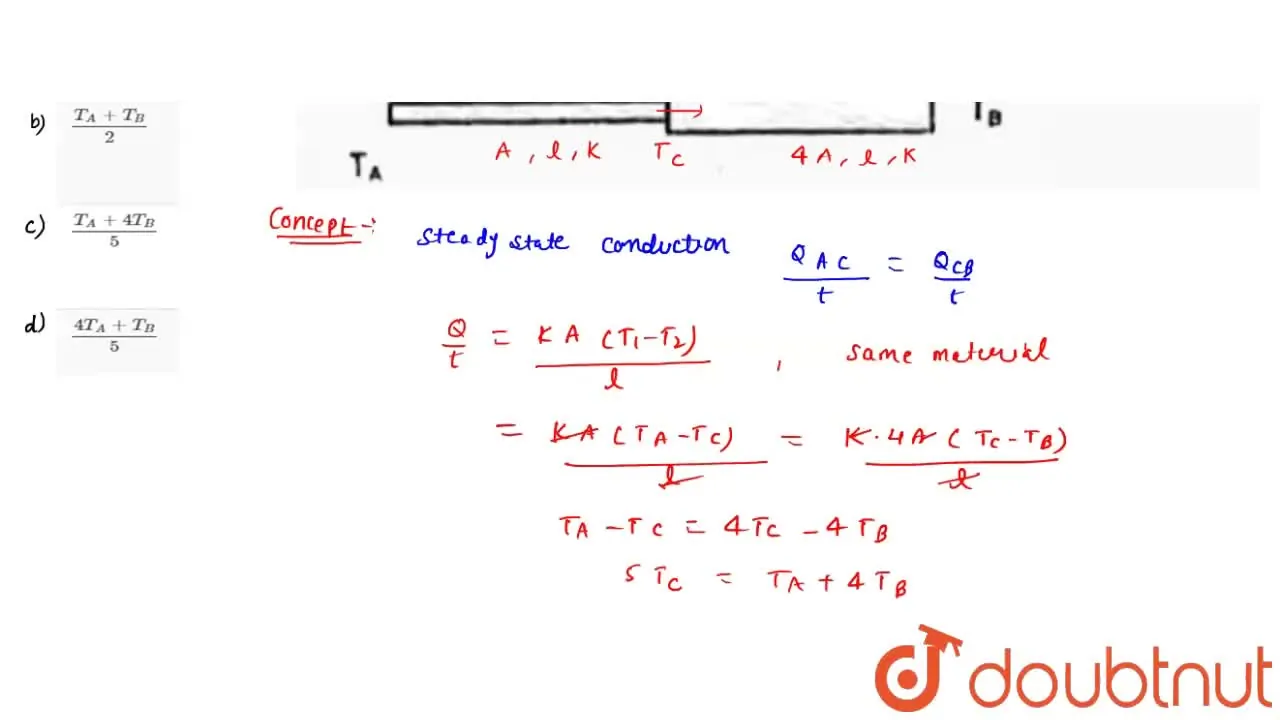 b) T_A + T_B / 2
T_B
A , l , K T_C 4A, l, K
T_A
c) T_A + 4T_B / 5
Concept -:
steady state conduction Q_AC / t = Q_CB / t
d) 4T_A + T_B / 5
Q / t = KA (T_1 - T_2) / l , same material
= KA (T_A - T_C) / l = K·4A (T_C - T_B) / l
T_A - T_C = 4T_C - 4T_B
5T_C = T_A + 4T_B
doubtnut